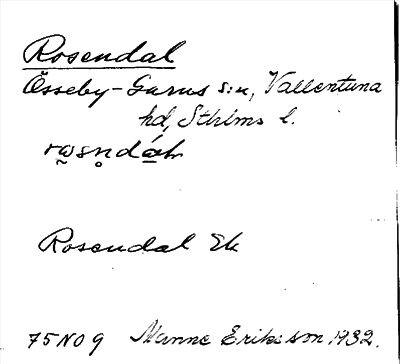 Rosendal
Össeby-Garns s:n, Vallentuna
hd, Sthlms l.
Rosendal Ek
75 NO 9 Manne Eriksson 1932.